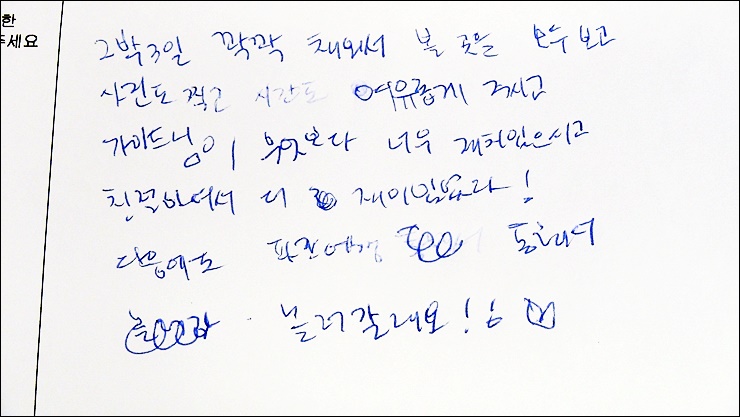 한
주세요
2박3일 꽉꽉 채워서 볼 곳을 모두 보고
사진도 찍고 시간도 여유롭게 주시고
가이드님이 무엇보다 너무 재치있으시고
친절하셔서 더 재미있었다!
다음에도 통하여
놀러갈래요!